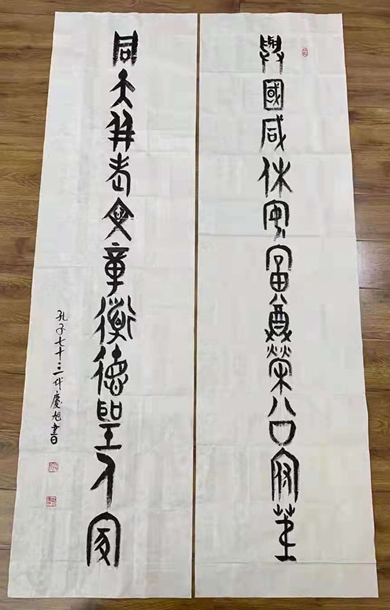 與國咸休安富尊榮公府第
同天並老文章道德聖人家
孔子七十三代慶旭書